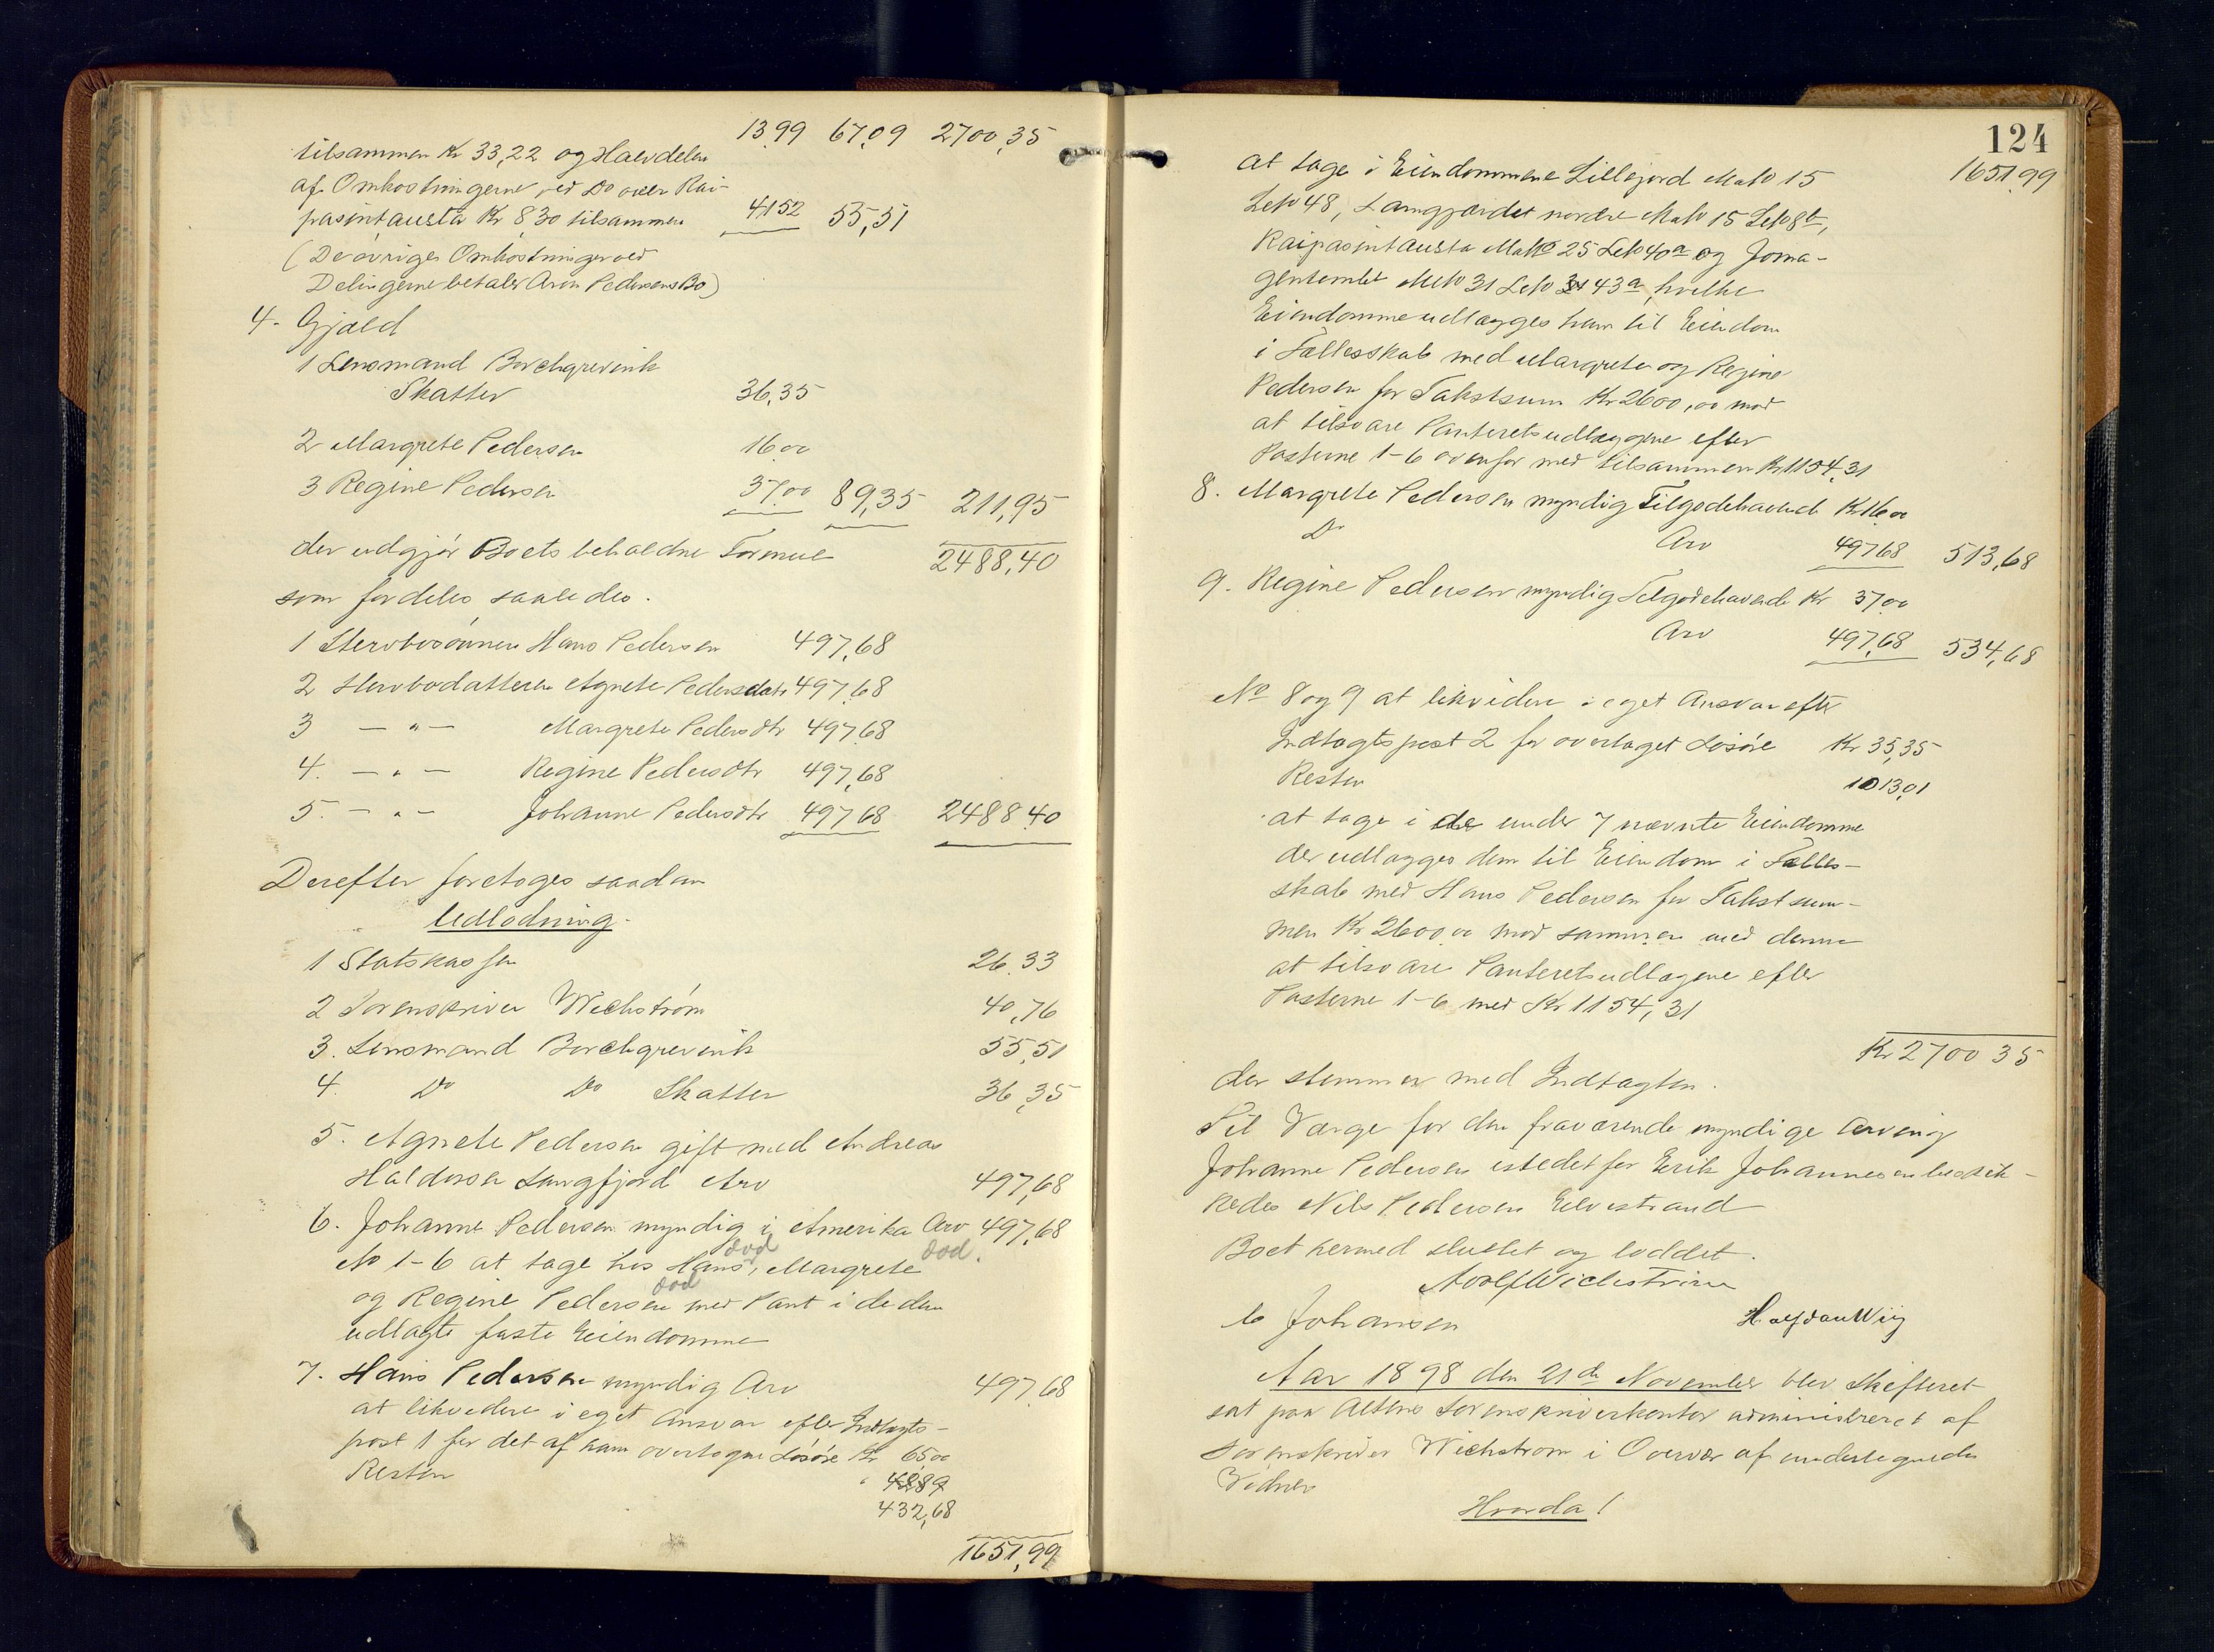 13,99 67,09 2700,35
tilsammen Kr 33,22 og Halvdelen
af Omkostningerne ved Do over Rai-
pasintausta Kr 8,30 tilsammen 41,52 55,51
(De øvrige Omkostninger ved
Delingerne betaler Aron Pedersens Bo)
4. Gjæld
1 Lensmand Borchgrevink
Skatter 36,35
2 Margrete Pedersen 16,00
3 Regine Pedersen 37,00 89,35 211,95
der udgjør Boets beholdne Formue 2488,40
som fordeles saaledes.
1 Stervbosønnen Hans Pedersen 497,68
2 Stervbodatteren Agnete Pedersdatr 497,68
3 — " — Margrete Pedersdtr 497,68
4. — " — Regine Pedersdtr 497,68
5. — " — Johanne Pedersdtr 497,68 2488,40
Derefter foretoges saadan
Udlodning.
1 Statskassen 26.33
2 Sorenskriver Wichstrøm 40,76
3. Lensmand Borchgrevink 55,51
4. Do Do Skatter 36,35
5. Agnete Pedersen gift med Andreas
Haldorsen Langfjord Arv 497,68
6. Johanne Pedersen myndig i Amerika Arv 497,68
død død.
No 1-6 at tage hos Hans, Margrete
død
og Regine Pedersen med Pant i de dem
udlagte faste Eiendomme
7. Hans Pedersen myndig Arv 497,68
at likvidere i eget Ansvar efter Indtægts-
post 1 for det af ham overtagne Løsøre Kr 65,00
Resten " 4889
432,68
1651,99
124
1651,99
at tage i Eiendommene Lillejord MaNo 15
LeNo 48, Langgjærdet nordre MaNo 15 LeNo 8b,
Raipasintausta MaNo 25 LeNo 40a og Joma-
gentemlet MNo 31 LeNo 31 43a, hvilke
Eiendomme udlægges ham til Eiendom
i Fællesskab med Margrete og Regine
Pedersen for Takstsum Kr 2600,00 mod
at tilsvare Panteretsudlæggene efter
Posterne 1-6 ovenfor med tilsammen Kr 1154,31
8. Margrete Pedersen myndig Tilgodehavende Kr 16,00
Do Arv 497,68 513,68
9. Regine Pedersen myndig Tilgodehavende Kr 37,00
Arv 497,68 534,68
No 8 og 9 at likvidere i eget Ansvar efter
Indtægtspost 2 for overtaget Løsøre Kr 35,35
Resten 1013,01
at tage i de under 7 nævnte Eiendomme
der udlægges dem til Eiendom i Fælles-
skab med Hans Pedersen for Takstsum-
men Kr 2600,00 mod sammen med denne
at tilsvare Panteretsudlægene efter
Posterne 1-6 med Kr 1154,31
Kr 2700 35
der stemmer med Indtægten.
Til Værge for den fraværende myndige Arving
Johanne Pedersen istedetfor Erik Johannesen beskik-
kedes Nils Pedersen Elvestrand
Boet hermed sluttet og loddet.
Adolf Wichstrøm
C Johansen Halfdan Wiig
Aar 1898 den 21de November blev Skifteret
sat paa Altens Sorenskriverkontor administreret af
Sorenskriver Wichstrøm i Overvær af undertegnede
Vidner
Hvorda!